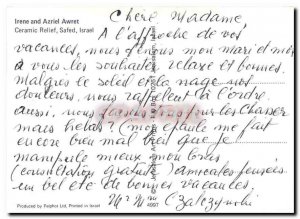 Irene and Azriel Awret
Ceramic Relief, Safed, Israel
Chère Madame,
A l'approche de vos
vacances, nous tenons mon mari et moi
à vous les souhaiter relaxe et bonnes.
Malgrès le soleil et la nage nos
douleurs nous rappellent à l'ordre
aussi, nous pour les chasser
mais hélas? (mon épaule me fait
encore bien mal bien que je
manipule mieux mon bras
(consultation gratuite) amicales pensées
un bel été de bonnes vacances.
Mr Mme
Produced by Palphot Ltd. Printed in Israel
4997